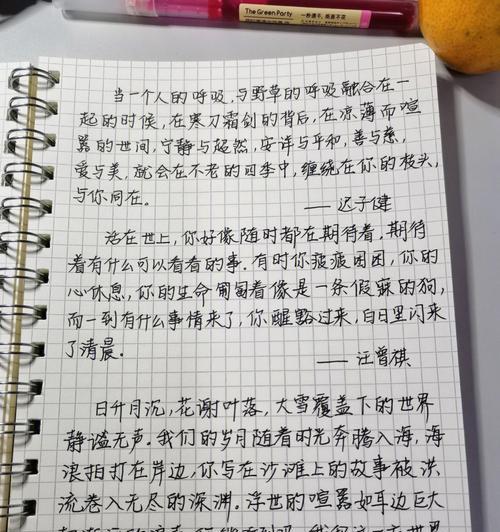 The Green Party
一秒速干，纸面不花
当一个人的呼吸，与野草的呼吸融合在一
起的时候，在寒刀霜剑的背后，在凉薄而喧
嚣的世间，宁静与超然，安详与平和，善与慈，
爱与美，就会在不老的四季中，缠绕在你的枝头，
与你同在。
——迟子健
活在世上，你好像随时都在期待着，期待
着有什么可以看看的事。有时你疲疲困困，你的
心休息，你的生命匍匐着像是一条假寐的狗，
而一到有什么事情来了，你醒豁过来，白日里闪来
了清晨。
——汪曾祺
日升月沉，花谢叶落，大雪覆盖下的世界
静谧无声。我们的岁月随着时光奔腾入海，海
浪拍打在岸边，你写在沙滩上的故事被洪
流卷入无尽的深渊。浮世的喧嚣如耳边巨大